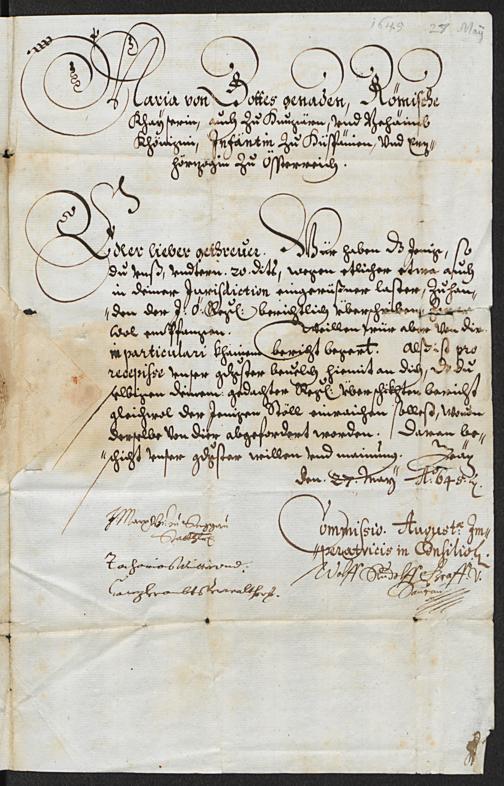 1645 27 Maÿ
Maria von Gottes genaden, Römische
Khaÿserin, auch zu Hungärn, und Behaimb
Khönigin, Infantin zu Hispanien, und Erz=
hörzogin zu Österreich.
Edler lieber gethreuer. Wür haben dz Jenige, so
du unß, undterm 20. dits, wegen etlicher etwa auch
in deiner Jurisdiction eingerißner laster, zuhan=
den der I: Ö: Regi: berichtlich überschriben
wol empfangen. Weillen wür aber von dir
in particulari khainen bericht begert. Alß ist pro
recepisse unser gdister bevelch hiemit an dich, dz du
selbigen deinem gedachter Regi: überschikhten bericht
gleichwol der Jenigen Stöll einraichen sollest, wovon
derselbe von dier abgefordert worden. Daran be=
schicht unser gdister willen und mainung. Gräz
den 27. Maÿ A: 645.
Commissio Augustae Im=
peratricis in Consilio.
Wolff Rudolff